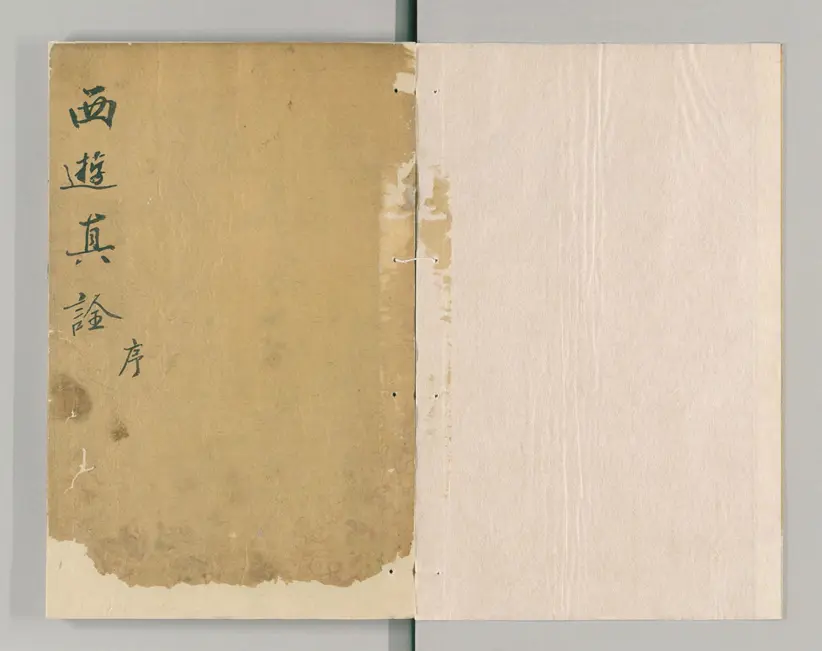 西遊真詮
序